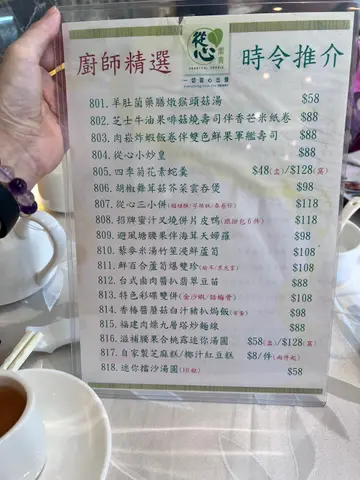 廚師精選
從心
蔬食
一切從心出發
時令推介
801. 羊肚菌藥膳燉猴頭菇湯 $58
802. 芝士牛油果啡菇燒壽司伴香芒米紙卷 $88
803. 肉崧炸蝦飯卷伴雙色鮮果軍艦壽司 $88
804. 從心小炒皇 $88
805. 四季菊花素蛇羹 $48(盅)/$128(窩)
806. 胡椒雞茸菇芥菜雲吞煲 $98
807. 從心三小併 $118
808. 招牌蜜汁叉燒併片皮鴨(跟餅包6件) $118
809. 避風塘腰果伴海茸天婦羅 $98
810. 藜麥米湯竹笙浸鮮蘆筍 $108
811. 鮮百合蘆筍爆雙珍 $108
812. 台式卤肉醬扒翡翠豆苗 $88
813. 特色彩碟雙併 $108
814. 香椿蘑菇白汁豬扒焗飯 $98
815. 福建肉燥九層塔炒麵線 $88
816. 滋補腰果合桃露迷你湯圓 $58(盅)/$128(窩)
817. 自家製芝麻糕/椰汁紅豆糕 $8/件(兩件起)
818. 迷你擂沙湯圓(10粒) $58